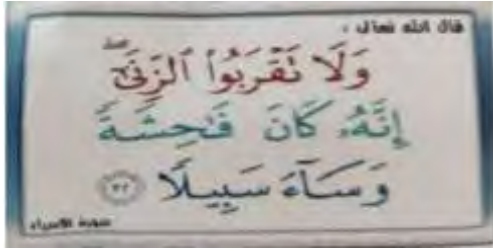 قال الله تعالى :
وَلَا تَقْرَبُوا۟ ٱلزِّنَىٰٓ ۖ
إِنَّهُۥ كَانَ فَـٰحِشَةً
وَسَآءَ سَبِيلًا ﴿٣٢﴾
سورة الإسراء